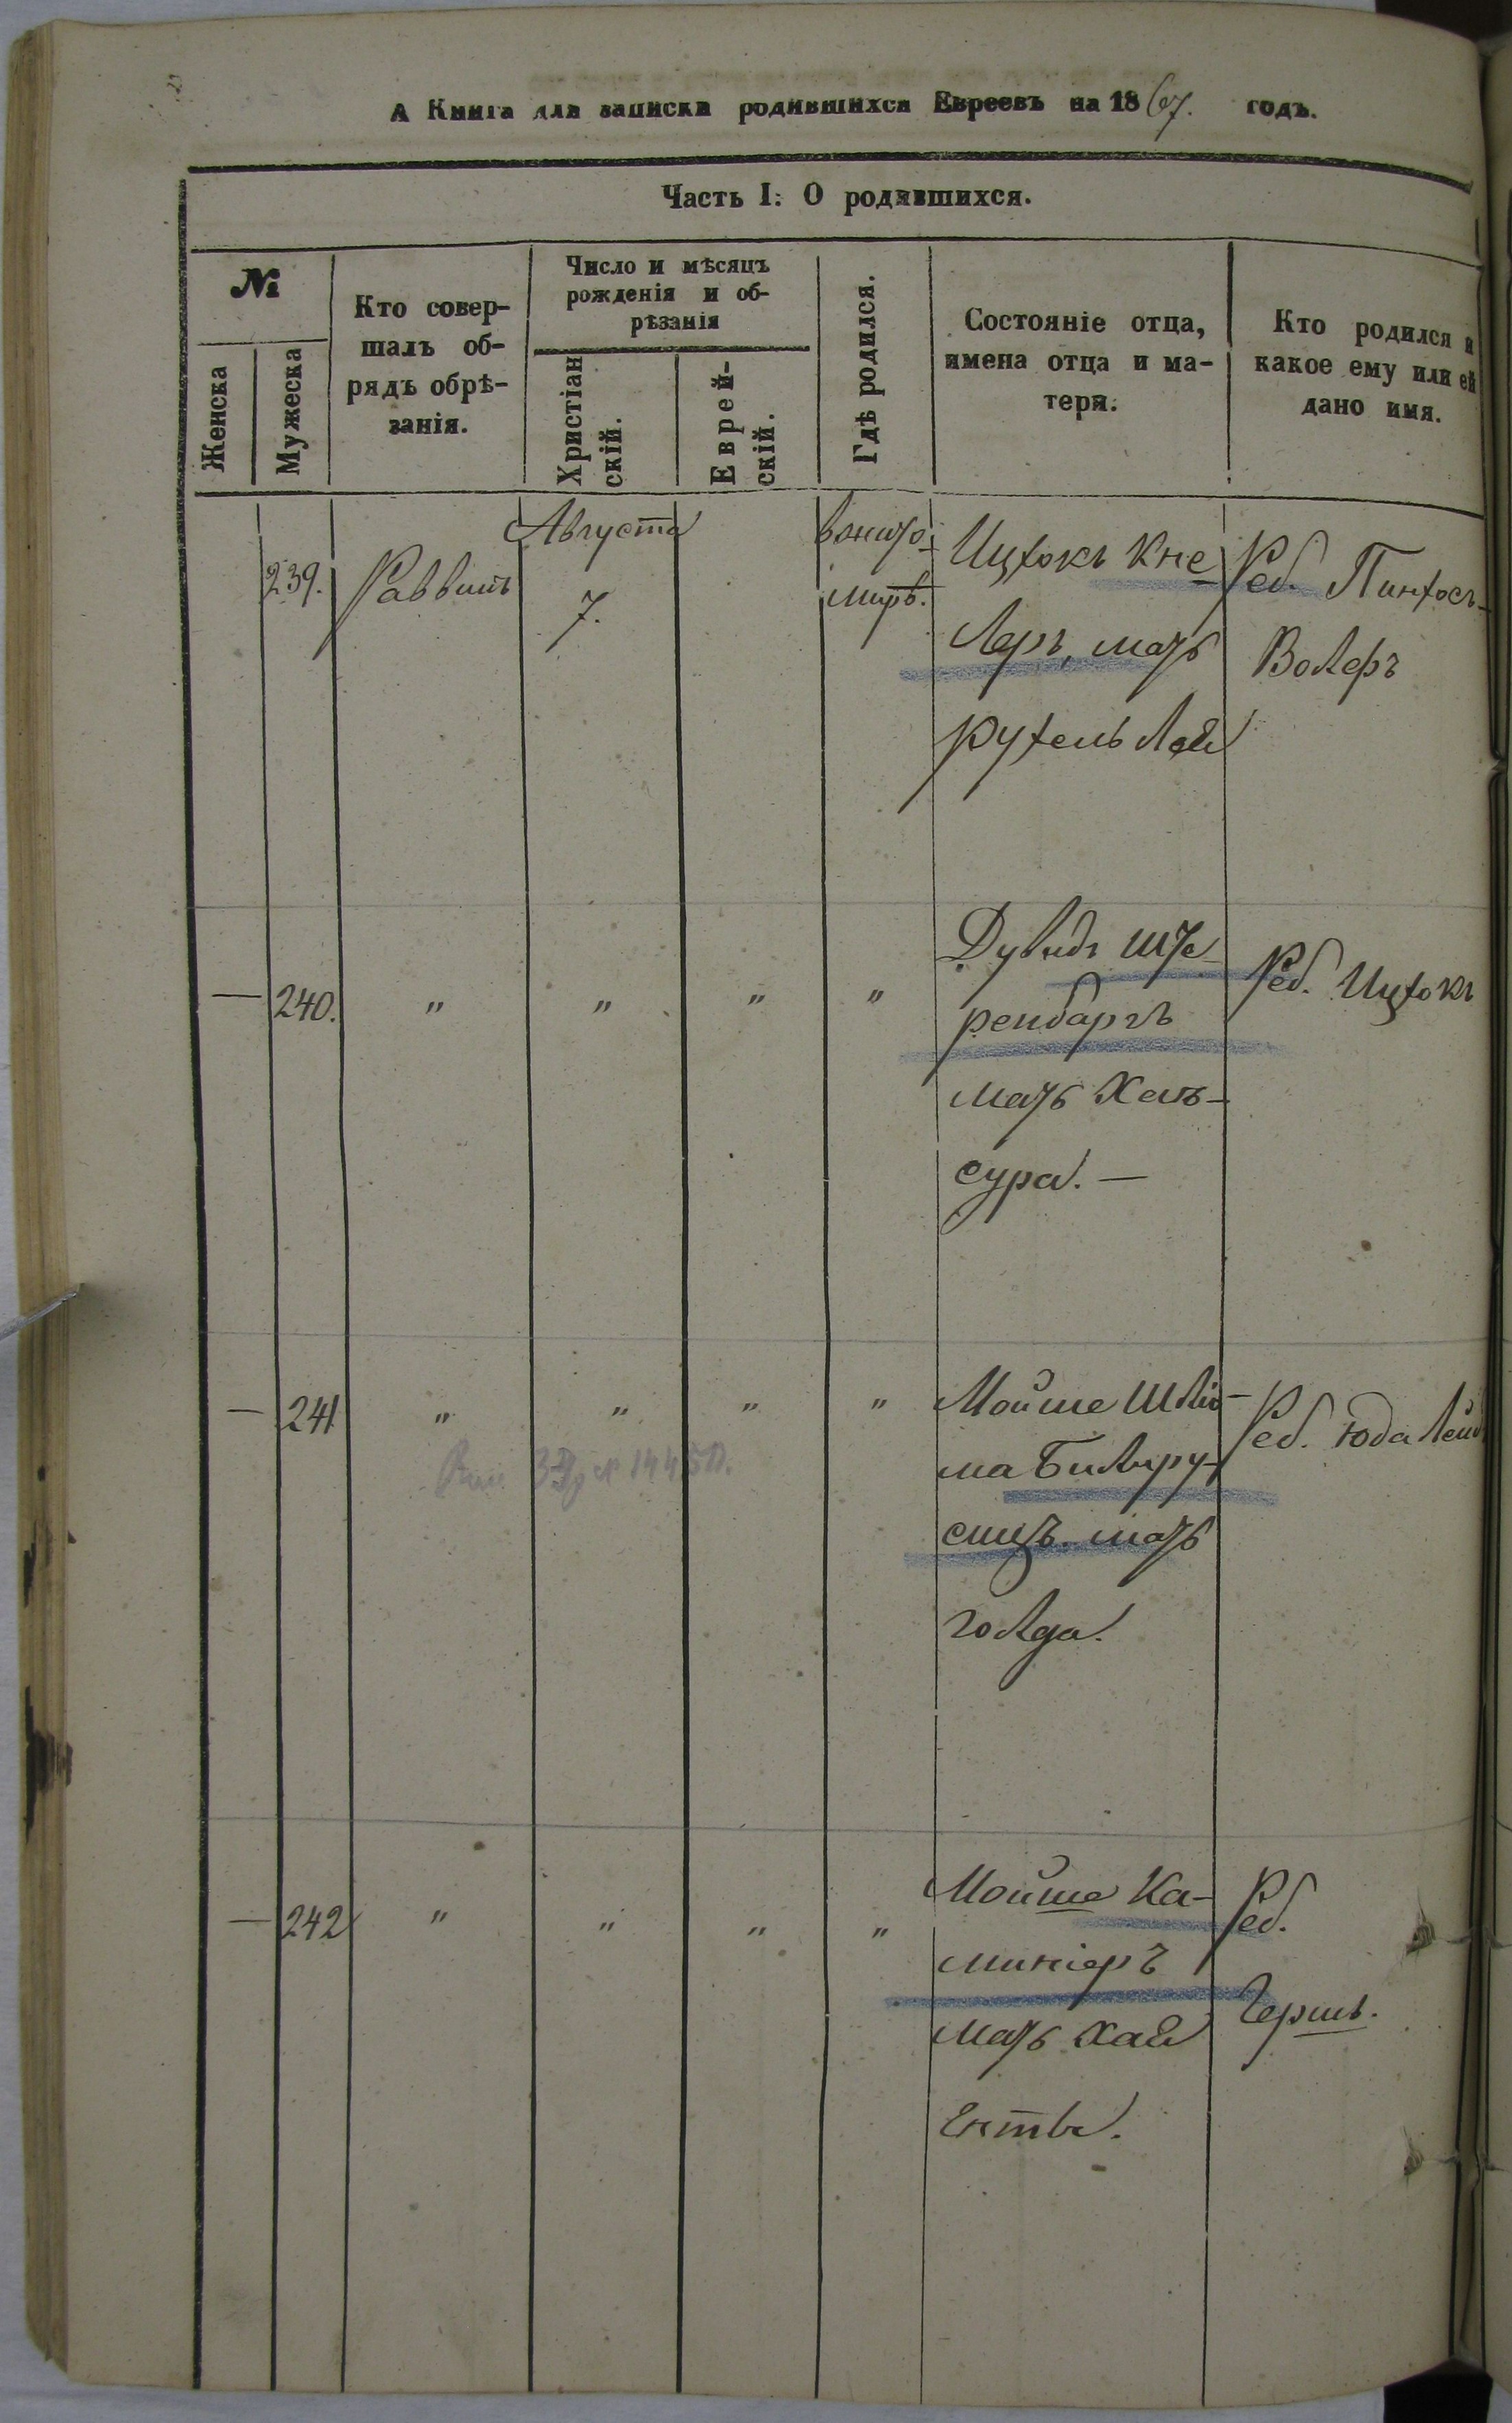 А Книга для записки родившихся Евреевъ на 1867. годъ.
Часть I: О родившихся.
№
Женска
Мужеска
Кто совер-
шалъ об-
рядъ обрѣ-
занія.
Число и мѣсяцъ
рожденія и об-
рѣзанія
Христіан
скій.
Еврей-
скій.
Гдѣ родился.
Состояніе отца,
имена отца и ма-
тери.
Кто родился и
какое ему или ей
дано имя.
239.
Раввинъ
Августа
7.
Ицхокъ Кне
леръ, мать
Рухель Лея
Реб. Пинхосъ-
Волеръ
— 240. " " " "
Дувидъ Ште
ренбаргъ
мать Хая-
сура. —
Реб. Ицхокъ
— 241 " " " "
Мойше Шлио-
ма
мать
голда.
Реб. Юда Лейб
— 242 " " " "
Мойше Ка-
миніеръ
мать Хая
Ентва.
Реб.
Гершъ.